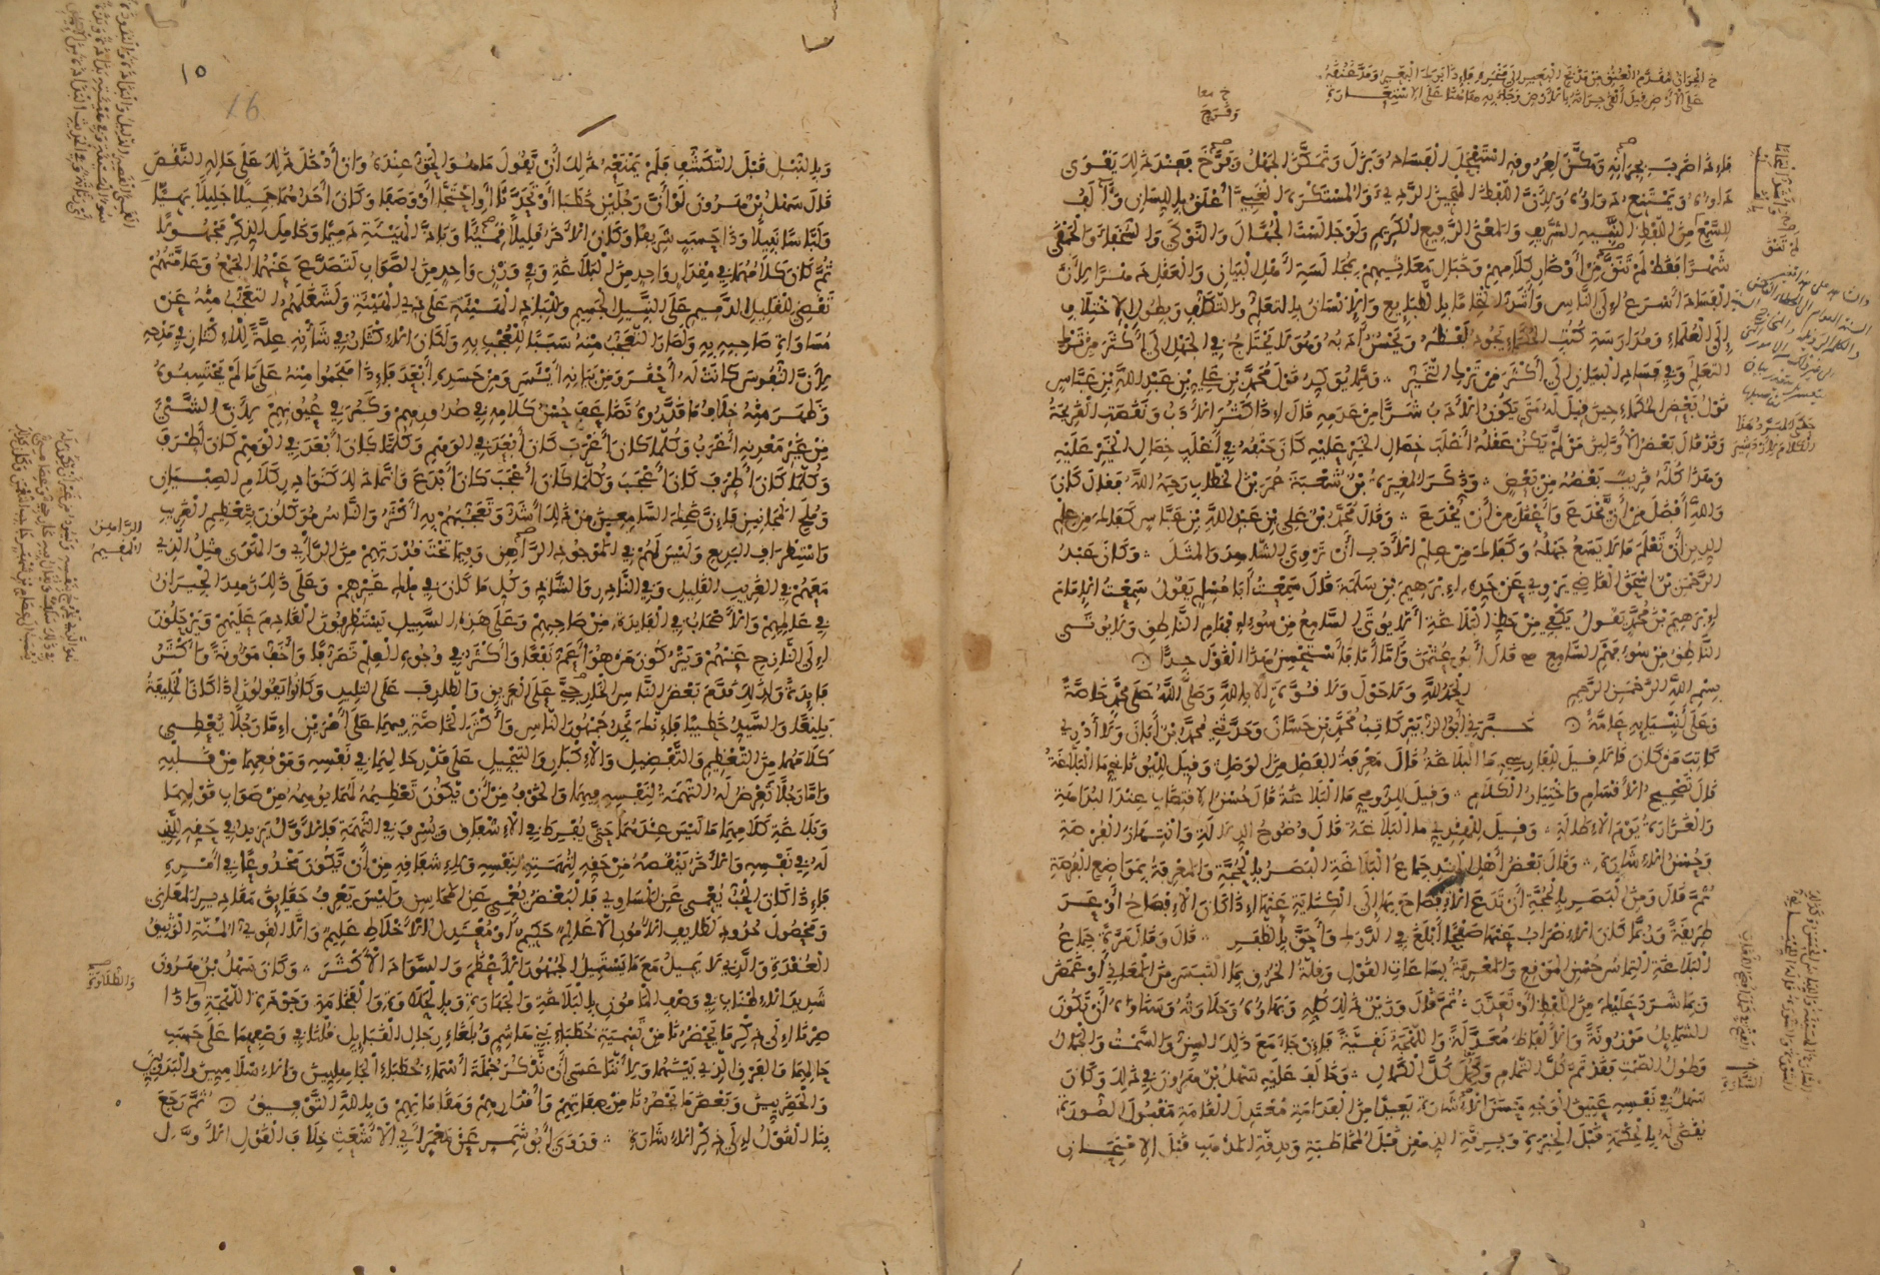 فإذا ضرب بجرانه ومكن لعروقه استفحل الفساد وبزل وتمكن الجهل وفرخ فعند ذلك يقوى
داؤه ويمتنع دواؤه ولأن اللفظ الهجين الردي والمستكره الغبي أعلق باللسان وآلف
للسمع من اللفظ النبيه الشريف والمعنى الرفيع الكريم ولو جالست الجهال والنوكى والسخفاء والحمقى
شهرا فقط لم تنق من أوضار كلامهم وخبال معانيهم بمجالسة أهل البيان والعقل دهرا لأن
الفساد أسرع إلى الناس وأشد التحاما بالطبايع والإنسان بالتعلم والتكلف وبطول الاختلاف
إلى العلماء ومدارسة كتب الحكماء يجود لفظه ويحسن أدبه وهو لا يحتاج في الجهل إلى أكثر من ترك
التعلم وفي فساد البيان إلى أكثر من ترك التخير ومما يؤكد قول محمد بن علي بن عبد الله بن عباس
قول بعض الحكماء حين قيل له متى يكون الأدب شرا من عدمه قال إذا كثر الأدب ونقصت القريحة
وقد قال بعض الأولين من لم يكن عقله أغلب خصال الخير عليه كان حتفه في أغلب خصال الخير عليه
وهذا كله قريب بعضه من بعض وذكر المغيرة بن شعبة عمر بن الخطاب رحمه الله فقال كان
والله أفضل من أن يخدع وأعقل من أن يخدع وقال محمد بن علي بن عبد الله بن عباس كفاك من علم
الدين أن تعلم ما لا يسع جهله وكفاك من علم الأدب أن تروي الشاهد والمثل وكان عبد
الرحمن بن إسحق القاضي يروي عن جده إبرهيم بن سلمة قال سمعت أبا مسلم يقول سمعت الإمام
إبرهيم بن محمد يقول يكفي من حظ البلاغة ألا يؤتى السامع من سوء إفهام الناطق ولا يؤتى
الناطق من سوء فهم السامع قال أبو عثمن وأما أنا فأستحسن هذا القول جدا
بسم الله الرحمن الرحيم الحمد لله ولا حول ولا قوة إلا بالله وصلى الله على محمد خاصة
وعلى أنبيايه عامة خبرني أبو الزبير كاتب محمد بن حسان وحدثني محمد بن أبان ولا أدري
كاتب من كان قالا قيل للفارسي ما البلاغة قال معرفة الفصل من الوصل وقيل لليوناني ما البلاغة
قال تصحيح الأقسام واختيار الكلام وقيل للرومي ما البلاغة قال حسن الاقتضاب عند البداهة
والغزارة يوم الإطالة وقيل للهندي ما البلاغة قال وضوح الدلالة وانتهاز الفرصة
وحسن الإشارة وقال بعض أهل الهند جماع البلاغة البصر بالحجة والمعرفة بمواضع الفرصة
ثم قال ومن البصر بالحجة أن تدع الإفصاح بها إلى الكناية عنها إذا كان الإفصاح أوعر
طريقة وربما كان الإضراب عنها صفحا أبلغ في الدرك وأحق بالظفر قال وقال مرة جماع
البلاغة التماس حسن الموقع والمعرفة بساعات القول وقلة الخرق بما التبس من المعاني أو غمض
وبما شرد عليك من اللفظ أو تعذر ثم قال وزين ذلك كله وبهاؤه وحلاوته وسناؤه أن تكون
الشمايل موزونة والألفاظ معدلة واللهجة نقية فإن جامع ذلك السن والسمت والجمال
وطول الصمت فقد تم كل التمام وكمل كل الكمال وخالف عليه سهل بن هارون في ذلك وكان
سهل في نفسه عتيق الوجه حسن الإشارة بعيدا من الفدامة معتدل القامة مقبول الصورة
يقضى له بالحكمة قبل الخبرة وبرقة الذهن قبل المخاطبة وبدقة المذهب قبل الامتحان
١٥
16
وبالنبل قبل التكشف فلم يمنعه ذلك أن يقول ما هو الحق عنده وإن أدخل ذلك على حاله النقص
قال سهل بن هرون لو أن رجلين خطبا أو تحدثا أو احتجا أو وصفا وكان أحدهما جميلا جليلا بهيا
ولباسا نبيلا وذا حسب شريفا وكان الآخر قليلا قميا وباذ الهيئة دميما وخامل الذكر مجهولا
ثم كان كلامهما في مقدار واحد من البلاغة وفي وزن واحد من الصواب لتصدع عنهما الجمع وعامتهم
تقضي للقليل الدميم على النبيل الجسيم وللباذ الهيئة على ذي الهيئة ولشغلهم التعجب منه عن
مساواة صاحبه به ولصار التعجب منه سببا للعجب به ولكان الإكثار في شأنه علة للإكثار في مدحه
لأن النفوس كانت له أحقر ومن بيانه أيأس ومن حسده أبعد فإذا هجموا منه على ما لم يحتسبوه
وظهر منه خلاف ما قدروه تضاعف حسن كلامه في صدورهم وكبر في عيونهم لأن الشيء
من غير معدنه أغرب وكلما كان أغرب كان أبعد في الوهم وكلما كان أبعد في الوهم كان أطرف
وكلما كان أطرف كان أعجب وكلما كان أعجب كان أبدع وإنما ذلك كنوادر كلام الصبيان
وملح المجانين فإن ضحك السامعين من ذلك أشد وتعجبهم به أكثر والناس موكلون بتعظيم الغريب
واستطراف البديع وليس لهم في الموجود الراهن وفيما تحت قدرتهم من الرأي والهوى مثل الذي
معهم في الغريب القليل وفي النادر الشاذ وكل ما كان في ملك غيرهم وعلى ذلك زهد الجيران
في عالمهم والأصحاب في الفايدة من صاحبهم وعلى هذه السبيل يستطرفون القادم عليهم ويرحلون
إلى النازح عنهم ويتركون من هو أعم نفعا وأكثر في وجوه العلم تصرفا وأخف مؤونة وأكثر
فايدة ولذلك قدم بعض الناس الخارجي على العريق والطارف على التليد وكانوا يقولون إذا كان الخليفة
بليغا والسيد خطيبا فإنك تجد جمهور الناس وأكثر الخاصة فيهما على أمرين إما رجلا يعطي
كلامهما من التعظيم والتفضيل والإكبار والتبجيل على قدر حالهما في نفسه وموقعهما من قلبه
وإما رجلا تعرض له التهمة لنفسه فيهما والخوف من أن يكون تعظيمه لهما يوهمه من صواب قولهما
وبلاغة كلامهما ما ليس عندهما حتى يفرط في الإشفاق ويسرف في التهمة فالأول يزيد في حقه للذي
له في نفسه والآخر ينقصه من حقه لتهمته لنفسه ولإشفاقه من أن يكون مخدوعا في أمره
فإذا كان الحب يعمي عن المساوي فالبغض يعمي عن المحاسن وليس يعرف حقايق مقادير المعاني
ومحصول حدود لطايف الأمور إلا عالم حكيم أو معتدل الأخلاط عليم وإلا القوي المنة الوثيق
العقدة والذي لا يميل مع ما يستميل الجمهور الأعظم والسواد الأكثر وكان سهل بن هرون
شديد الإطناب في وصف المامون بالبلاغة والجهارة وبالحلاوة والفخامة وجودة اللهجة وإذا
صرنا إلى ذكر ما يحضرنا من تسمية خطباء بني هاشم وبلغاء رجال القبايل قلنا في وصفهما على حسب
حالهما والفرق الذي بينهما ولأننا عسى أن نذكر جملة أسماء خطباء الجاهليين والإسلاميين والبدويين
والحضريين وبعض ما يحضرنا من صفاتهم وأقدارهم ومقاماتهم وبالله التوفيق ثم رجع
بنا القول إلى ذكر الإشارة وروى أبو شمر عن معمر أبي الأشعث خلاف القول الأول